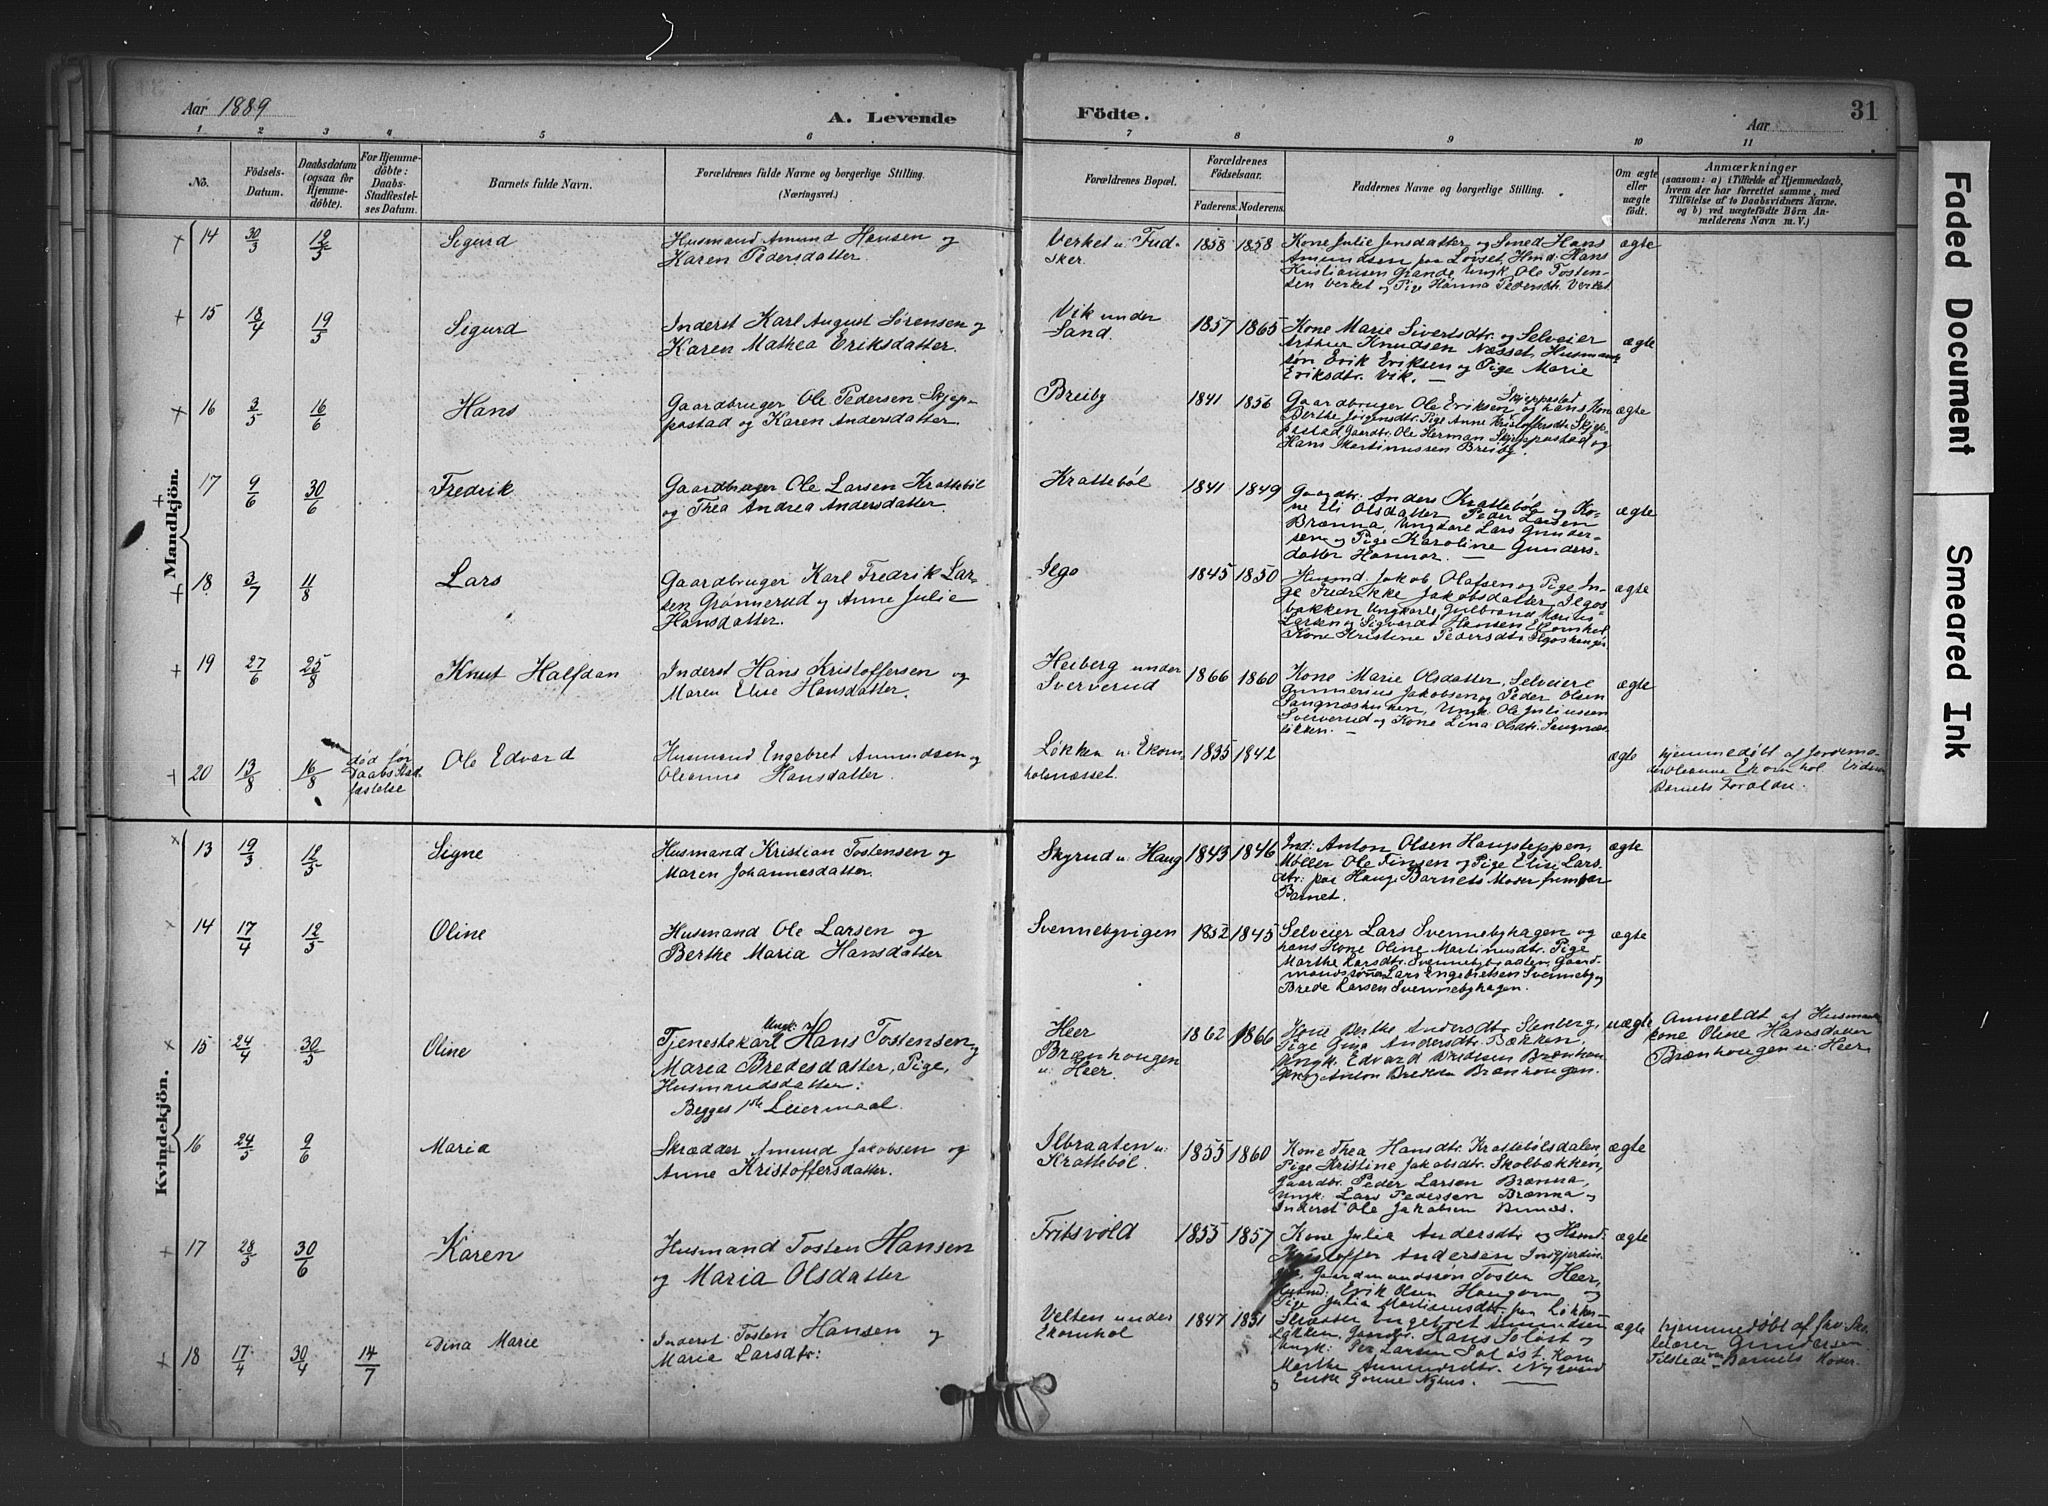 Aar 1889
A. Levende
Födte.
Aar
31
1 2 3 4 5 6 7 8 9 10 11
No.
Födsels-
Datum.
Daabsdatum
(ogsaa for
Hjemme-
döbte).
For Hjemme-
döbte:
Daabs-
Stadfæstel-
ses Datum.
Barnets fulde Navn.
Forældrenes fulde Navne og borgerlige Stilling.
(Næringsvei.)
Forældrenes Bopæl.
Forældrenes
Födselsaar.
Faderens. Moderens.
Faddernes Navne og borgerlige Stilling.
Om ægte
eller
uægte
födt.
Anmærkninger
(saasom: a) i Tilfælde af Hjemmedaab,
hvem der har forrettet samme, med
Tilföielse af to Daabsvidners Navne,
og b) ved uægtefödte Börn An-
melderens Navn m. V.)
Mandkjön.
14 30/3 12/5 Sigurd
Husmand Amund Hansen og
Karen Pedersdatter.
Verket u: Fud-
sker.
1858 1858
Kone Julie Jonsdatter og Smed Hans
Amundsen paa Lovset, Hmd: Hans
Kristiansen Grande, Ungk: Ole Tosten-
sen Verket og Pige Hanna Pedersdtr. Verket.
ægte
15 18/4 19/5 Sigurd
Inderst Karl August Sørensen og
Karen Mathea Eriksdatter.
Vik under
Sand.
1857 1865
Kone Marie Sivertsdtr. og Selveier
Arthur Knudsen Næsset, Husmands-
søn Erik Eriksen og Pige Marie
Eriksdtr. Vik. —
ægte
16 3/5 16/6 Hans
Gaardbruger Ole Pedersen Skjep-
pestad og Karen Andersdatter.
Breiby
1841 1856
Skjeppestad
Gaardbruger Ole Eriksen og hans Kone
Berthe Jørgensdtr. Pige Anne Kristoffersdtr. Skjep-
pestad, Gaardbr. Ole Herman Skjeppestad og
Hans Martinussen Breiby.
ægte
17 9/6 30/6 Fredrik
Gaardbruger Ole Larsen Krattebøl
og Thea Andrea Andersdatter.
Krattebøl
1841 1849
Gaardbr. Anders Krattebøl og Ko-
ne Eli Olsdatter, Peder Larsen
Brænna, Ungkarl Lars Gunder-
sen og Pige Karoline Gunders-
datter Hamar. —
ægte
18 3/7 11/8 Lars
Gaardbruger Karl Fredrik Lar-
sen Grønnerud og Anne Julie
Hansdatter.
Ilgo
1845 1850
Husmd. Jakob Olafsen og Pige In-
ge Fredrikke Jakobsdatter Ilgos-
bakken, Ungkarle, Gulbrand Marius
Larsen og Sigvardt Hansen Ekornhol,
Kone Kristine Pedersdtr. Ilgoshaugen
ægte
19 27/6 25/8 Knut Halfdan
Inderst Hans Kristoffersen og
Maren Elise Hansdatter.
Heiberg under
Sververud
1866 1860
Kone Marie Olsdatter, Selveiere
Gunnerius Jakobsen og Peder Olsen
Sangnæshuken, Ungk. Ole Juliussen
Sververud og Kone Lina Olsdtr. Sangnæs-
løkken. —
ægte
20 13/8 16/8
død før
Daabs Stad-
fæstelse
Ole Edvard
Husmand Engebret Amundsen og
Oleanna Hansdatter.
Løkken u: Ekorn-
holsnæsset.
1835 1842
ægte
hjemmedøbt af Jordemo-
deren Oleanne Ekornhol. Vidner
Barnets Forældre.
Kvindekjön.
13 19/3 12/5 Signe
Husmand Kristian Tostensen og
Maren Johannesdatter.
Skyrud u: Haug
1843 1846
Ind: Anton Olsen Haugsteppen,
Møller Ole Finsen og Pige Elise Lars-
dtr: paa Haug. Barnets Moder frembar
Barnet.
ægte
14 17/4 12/5 Oline
Husmand Ole Larsen og
Berthe Maria Hansdatter
Svennebyvigen
1852 1845
Selveier Lars Svennebyhagen og
hans Kone Oline Martinusdtr. Pige
Marthe Larsdtr. Svennebydalen, Gaard-
mandssøn Lars Engebretsen Svenneby og
Brede Larsen Svennebyhagen.
ægte
15 24/4 30/5 Oline
Ungk:
Tjenestekarl Hans Tostensen og
Maria Bredesdatter, Pige,
Husmandsdatter:
Begges 1ste Leiermaal.
Heer
Brænhougen
u: Heer.
1862 1866
Kone Berthe Andersdtr. Stenberg,
Pige Gina Andersdtr. Bækken,
Ungk. Edvard Bredesen Brænhou-
gen og Anton Bredesen Brænhougen.
uægte
Anmeldt af Husmands-
kone Oline Hansdatter
Brænhougen u: Heer.
16 24/5 9/6 Maria
Skrædder Amund Jakobsen og
Anne Kristoffersdatter.
Ilbraaten u:
Krattebøl.
1855 1860
Kone Thea Hansdtr. Krattebølsdalen,
Pige Kristine Jakobsdtr. Skolbækken,
Gaardbr. Peder Larsen Brænna,
Ungk: Lars Pedersen Brænna og
Inderst Ole Jakobsen
ægte
17 28/5 30/6 Karen
Husmand Tosten Hansen
og Maria Olsdatter
Fritsvold
1855 1857
Kone Julie Andersdtr og Husmd.
Kristoffer Andersen
Gaardmandssøn Tosten Heer,
Husmd: Erik Olsen Haugom og
Pige Julia Martinusdtr. paa Løkke-
ægte
18 17/4 30/4 14/7 Dina Marie
Inderst Tosten Hansen og
Maria Larsdtr:
Velten under
Ekornhol
1847 1851
Engebret Amundsen
Løkken, Gaardbr. Hans Soløst og
Ungk: Per Larsen Soløst. Kone
Marthe Amundsdtr.
og Enke Nyhus. —
ægte
hjemmedøbt af Skole-
lærer Gundersen
Tilstede var Barnets Moder.
Faded Document
Smeared Ink